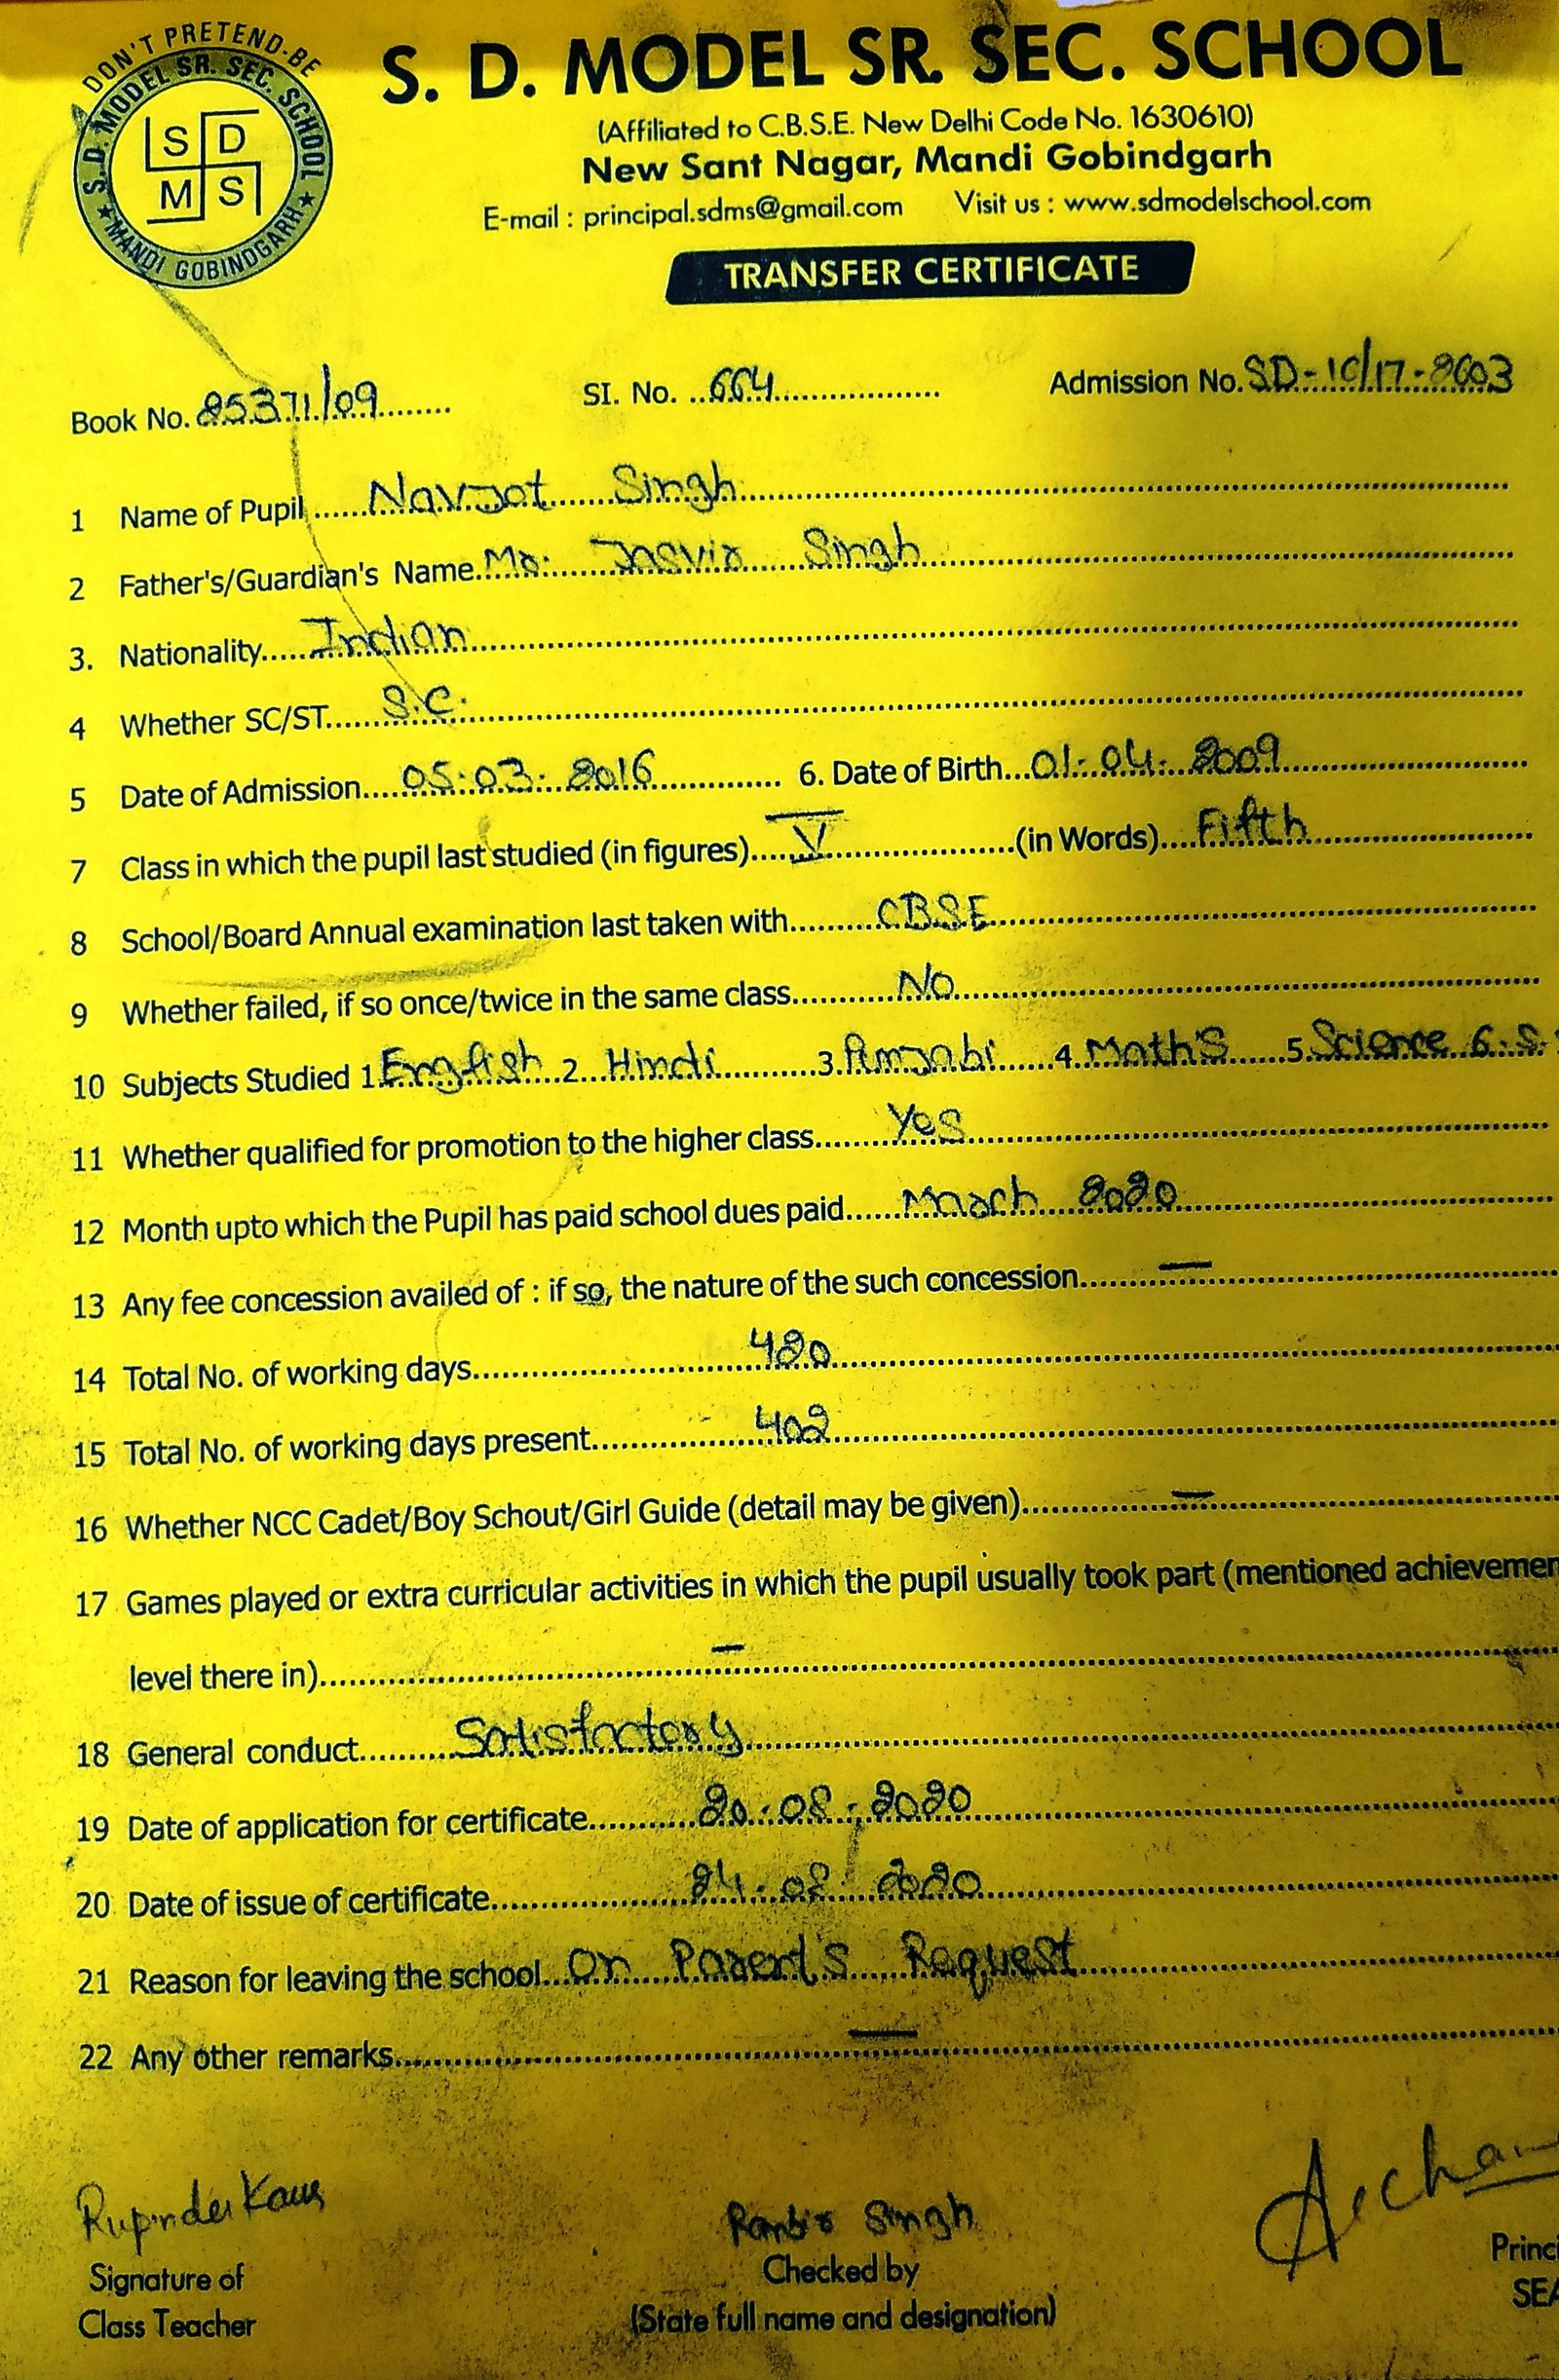 DON'T PRETEND-BE
S. D. MODEL SR. SEC. SCHOOL
S D
M S
★ MANDI GOBINDGARH ★
S. D. MODEL SR. SEC. SCHOOL
(Affiliated to C.B.S.E. New Delhi Code No. 1630610)
New Sant Nagar, Mandi Gobindgarh
E-mail : principal.sdms@gmail.com Visit us : www.sdmodelschool.com
TRANSFER CERTIFICATE
Book No. 25371/09 SI. No. 664 Admission No. SD-16/17-2603
1 Name of Pupil Navjot Singh
2 Father's/Guardian's Name Mr. Jasvir Singh
3. Nationality Indian
4 Whether SC/ST S.C.
5 Date of Admission 05.03.2016 6. Date of Birth 01.04.2009
7 Class in which the pupil last studied (in figures) V (in Words) Fifth
8 School/Board Annual examination last taken with CBSE
9 Whether failed, if so once/twice in the same class No
10 Subjects Studied 1 English 2 Hindi 3 Punjabi 4 Math's 5 Science 6. S.
11 Whether qualified for promotion to the higher class Yes
12 Month upto which the Pupil has paid school dues paid March 2020
13 Any fee concession availed of : if so, the nature of the such concession —
14 Total No. of working days 420
15 Total No. of working days present 402
16 Whether NCC Cadet/Boy Schout/Girl Guide (detail may be given) —
17 Games played or extra curricular activities in which the pupil usually took part (mentioned achievemen
level there in) —
18 General conduct Satisfactory
19 Date of application for certificate 20.08.2020
20 Date of issue of certificate 24.08.2020
21 Reason for leaving the school On Parent's Request
22 Any other remarks —
Rupinder Kaur Ranbir Singh Archan
Signature of Checked by Princi
Class Teacher (State full name and designation) SEA